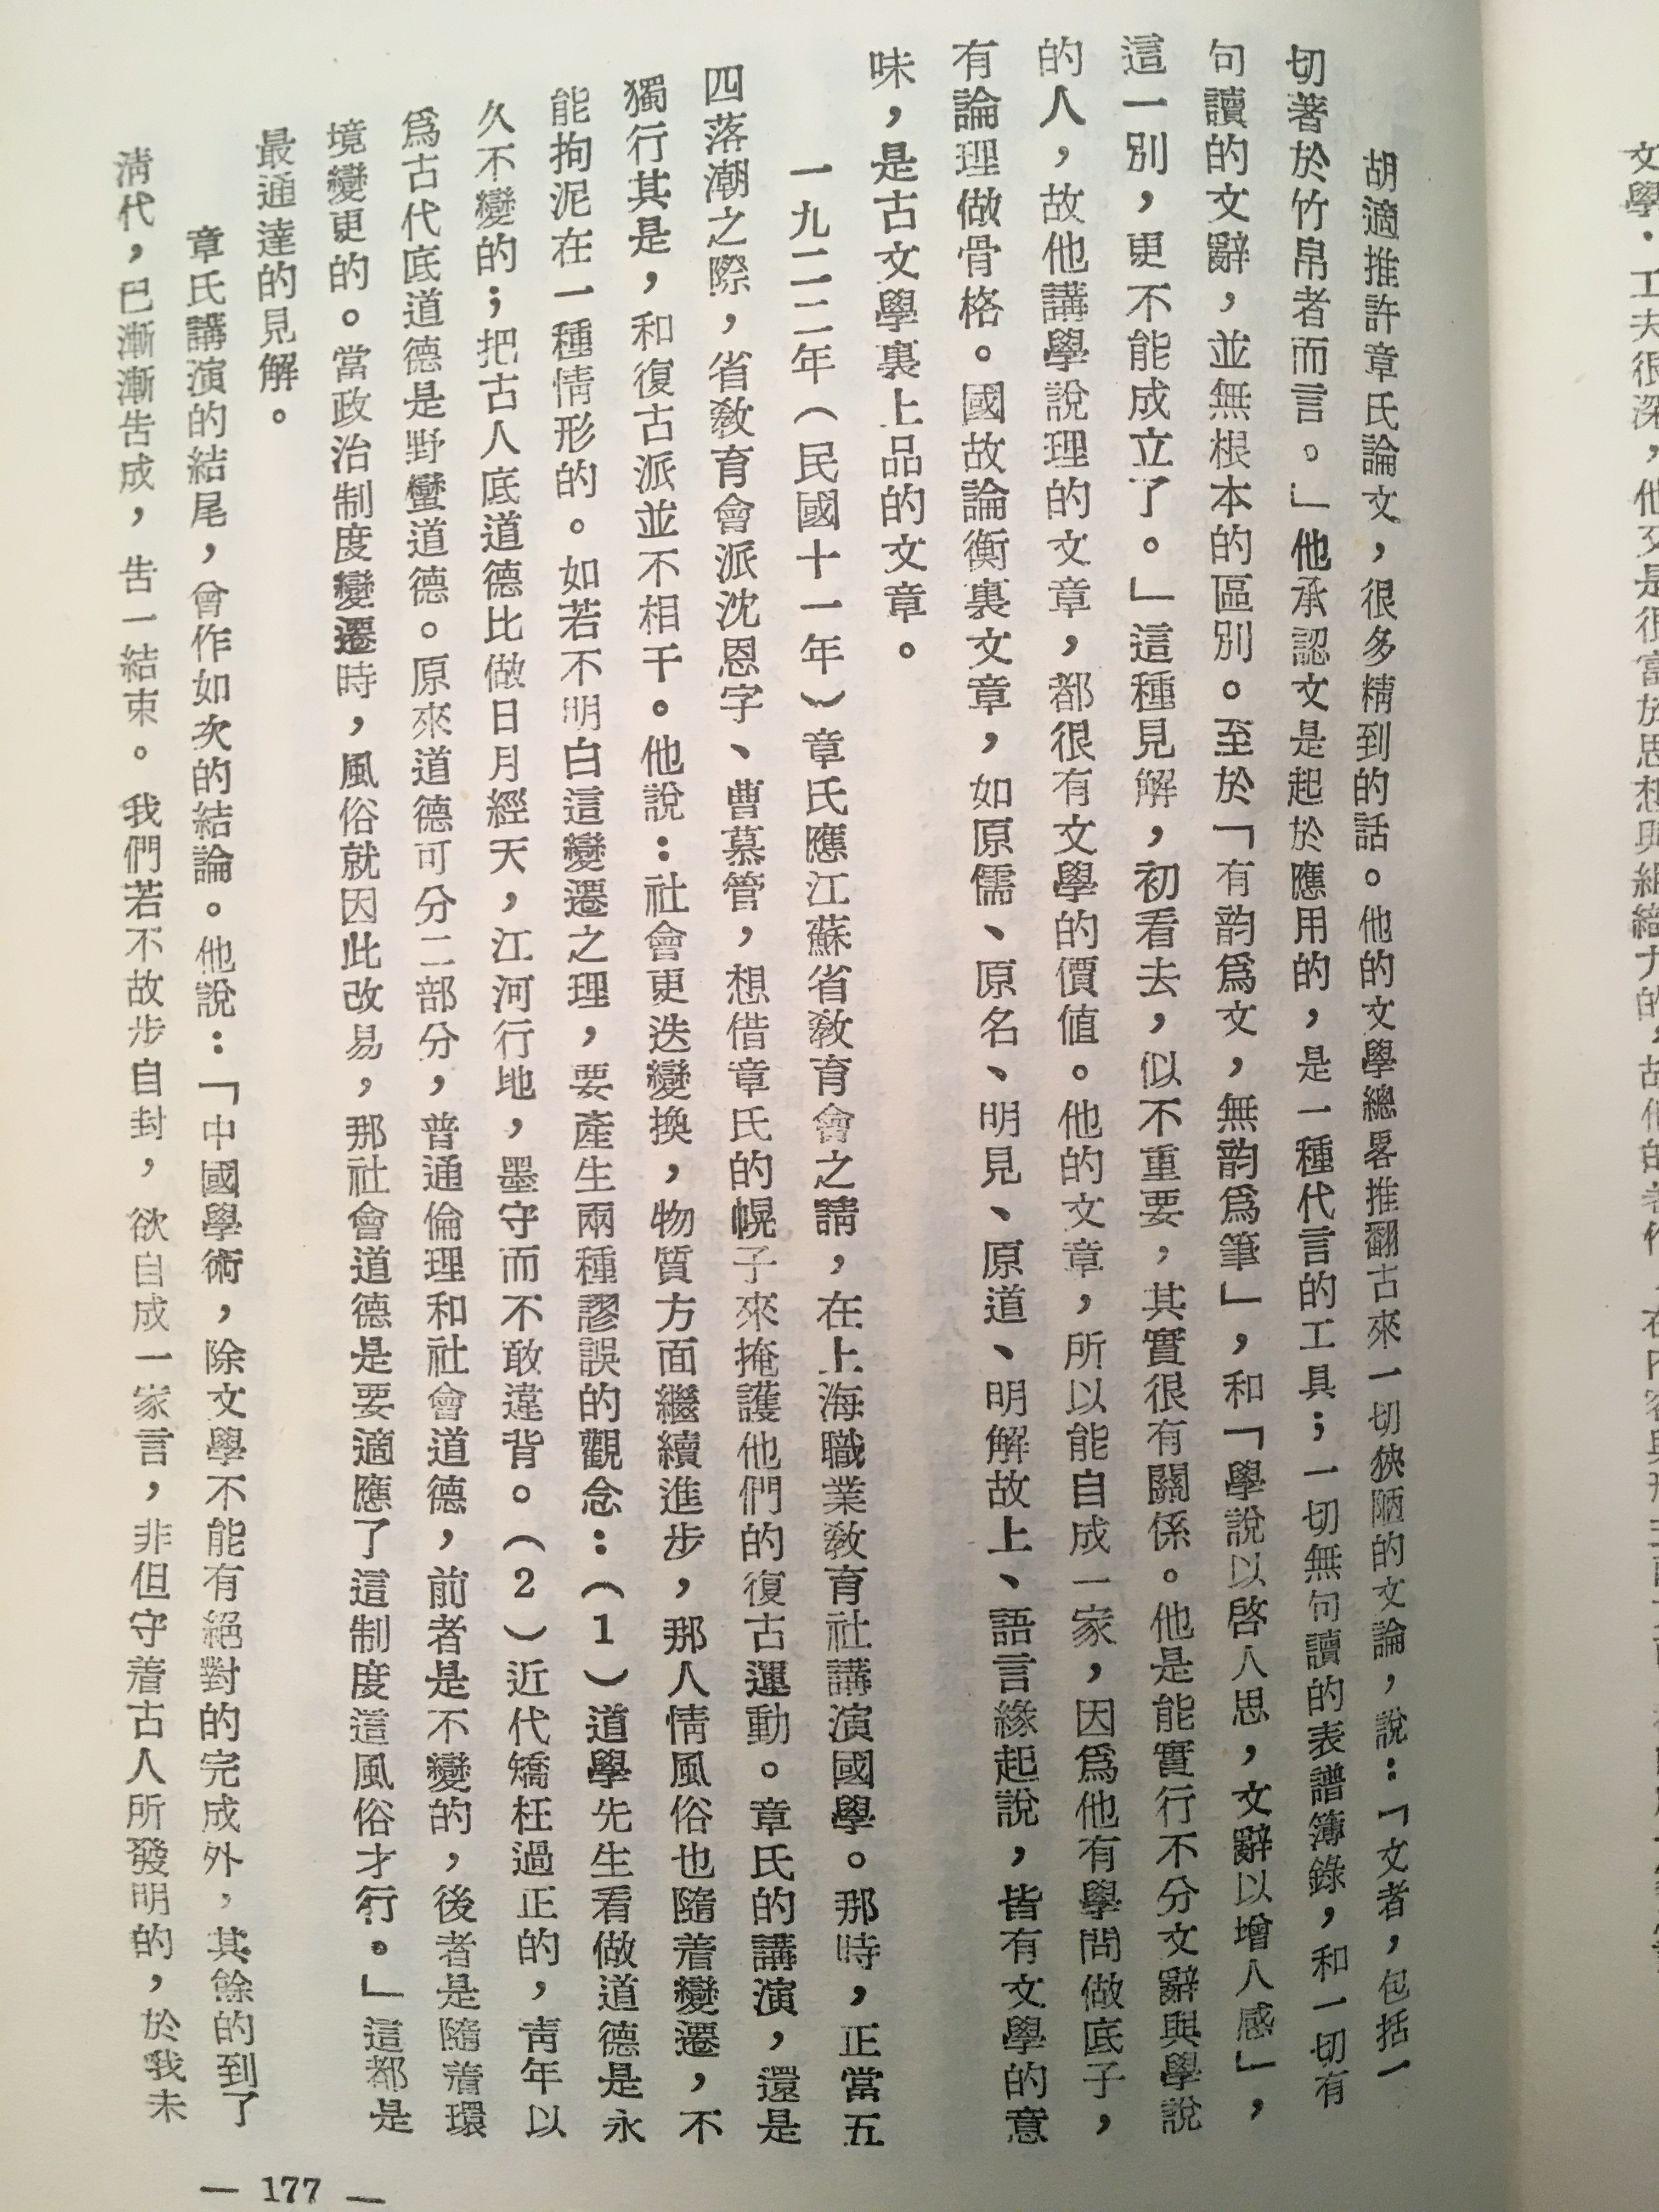 胡適推許章氏論文，很多精到的話。他的文學總畧推翻古來一切狹陋的文論，說：「文者，包括一
切著於竹帛者而言。」他承認文是起於應用的，是一種代言的工具；一切無句讀的表譜簿錄，和一切有
句讀的文辭，並無根本的區別。至於「有韵爲文，無韵爲筆」，和「學說以啓人思，文辭以增人感」，
這一別，更不能成立了。」這種見解，初看去，似不重要，其實很有關係。他是能實行不分文辭與學說
的人，故他講學說理的文章，都很有文學的價值。他的文章，所以能自成一家，因爲他有學問做底子，
有論理做骨格。國故論衡裏文章，如原儒、原名、明見、原道、明解故上、語言緣起說，皆有文學的意
味，是古文學裏上品的文章。
一九二二年（民國十一年）章氏應江蘇省敎育會之請，在上海職業敎育社講演國學。那時，正當五
四落潮之際，省敎育會派沈恩字、曹慕管，想借章氏的幌子來掩護他們的復古運動。章氏的講演，還是
獨行其是，和復古派並不相干。他說：社會更迭變換，物質方面繼續進步，那人情風俗也隨着變遷，不
能拘泥在一種情形的。如若不明白這變遷之理，要產生兩種謬誤的觀念：（1）道學先生看做道德是永
久不變的；把古人底道德比做日月經天，江河行地，墨守而不敢違背。（2）近代矯枉過正的，靑年以
爲古代底道德是野蠻道德。原來道德可分二部分，普通倫理和社會道德，前者是不變的，後者是隨着環
境變更的。當政治制度變遷時，風俗就因此改易，那社會道德是要適應了這制度這風俗才行。」這都是
最通達的見解。
章氏講演的結尾，曾作如次的結論。他說：「中國學術，除文學不能有絕對的完成外，其餘的到了
淸代，已漸漸告成，告一結束。我們若不故步自封，欲自成一家言，非但守着古人所發明的，於我未
— 177 —